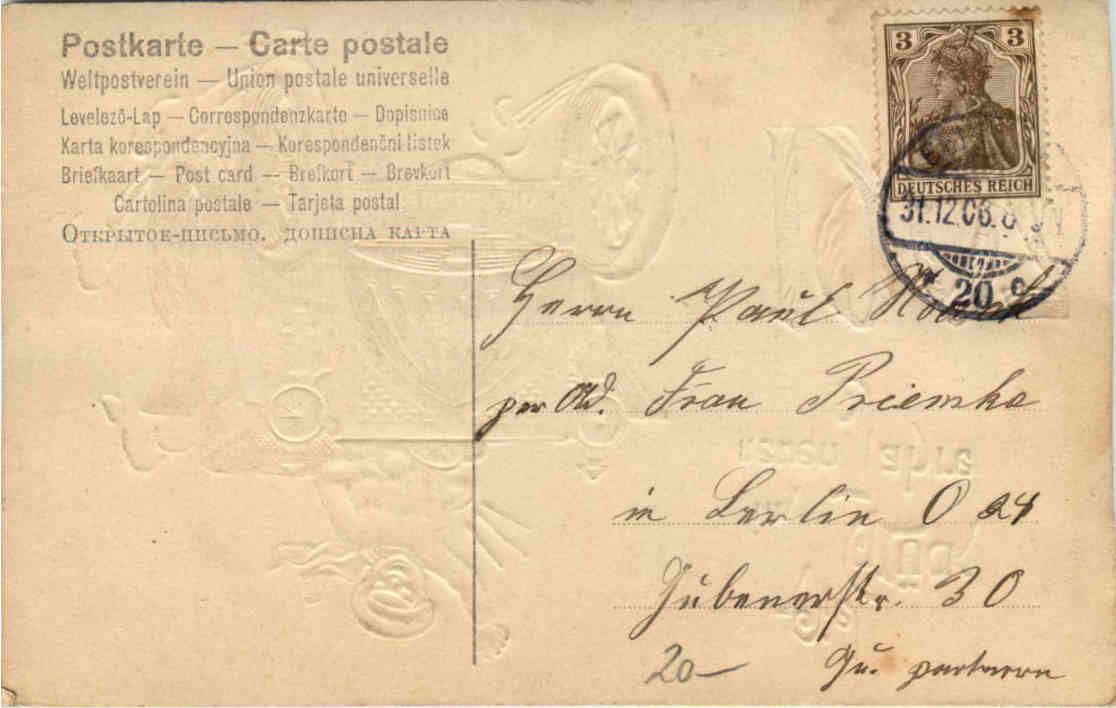 Postkarte — Carte postale
Weltpostverein — Union postale universelle
Levelező-Lap — Correspondenzkarte — Dopisnice
Karta korespondencyjna — Korespondenční listek
Briefkaart — Post card — Brefkort — Brevkort
Cartolina postale — Tarjeta postal
Открытое-письмо. дописна карта
3 3
DEUTSCHES REICH
31.12.06.8
* 20 c
Herrn Paul
per Ad. Frau Priemke
in Berlin O 24
Gubenerstr. 30
20—